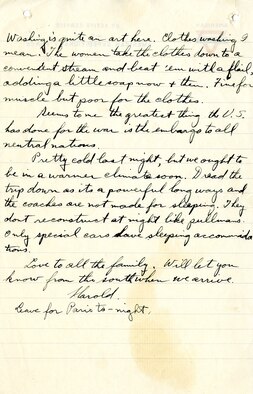 Washing is quite an art here. Clothes washing I
mean. The women take the clothes down to a
convenient stream and beat 'em with a flail,
adding a little soap now & then. Fine for
muscle but poor for the clothes.
Seems to me the greatest thing the U.S.
has done for the war is the embargo to all
neutral nations.
Pretty cold last night, but we ought to
be in a warmer clime to soon. Dread the
trip down as its a powerful long ways and
the coaches are not made for sleeping. They
dont reconstruct at night like pullmans.
Only special cars have sleeping accommoda
tions.
Love to all the family. Will let you
know from the south when we arrive.
Harold.
Leave for Paris to-night.